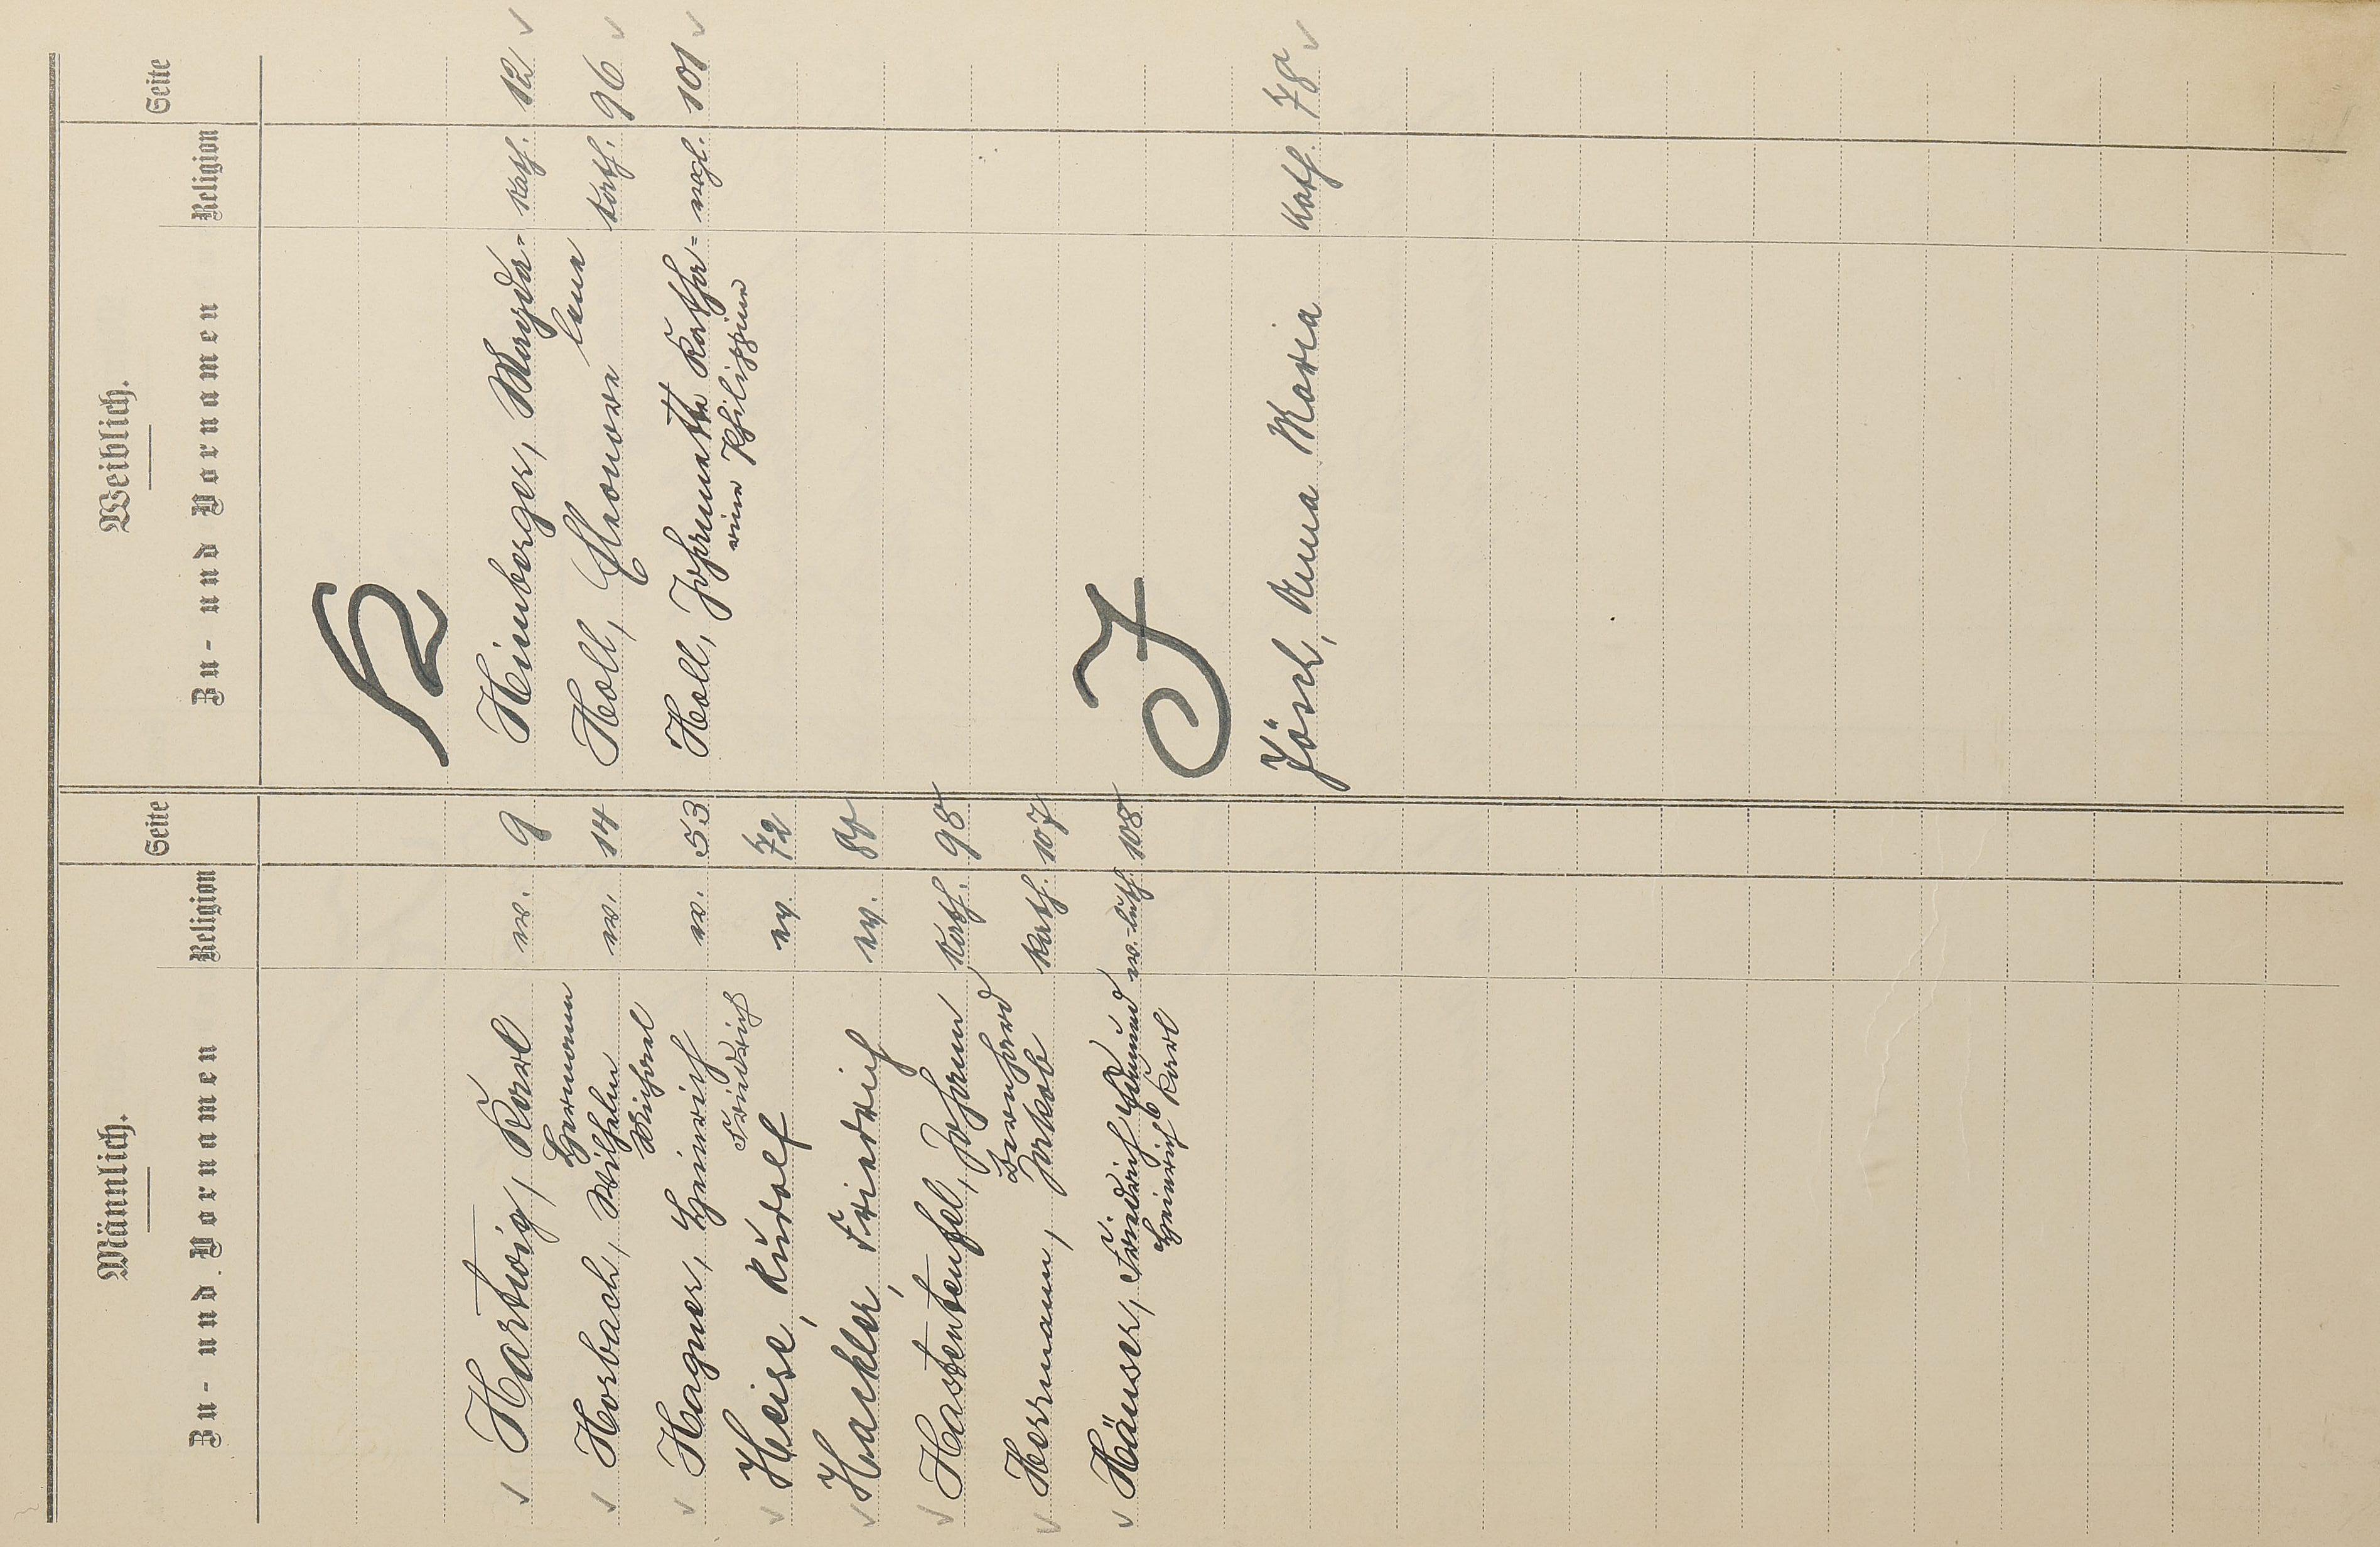 Männlich.
Zu- und Vornamen Religion Seite
Weiblich.
Zu- und Vornamen Religion Seite
H
✓ Hartwig, Karl ev. 9
Hermann
✓ Horbach, Wilhelm ev. 14
Michael
✓ Hagner, Heinrich ev. 53
Friedrich
✓ Heise, Rudolf ev. 72
✓ Hackler, Friedrich ev. 84
✓ Hastenteufel, Johann kath. 98
Bernhard
✓ Herrmann, Jakob kath. 107
✓ Häuser, Friedrich Edmund ev.-luth. 108
Heinrich Karl
Heimberger, Magda- kath. 12 ✓
lena
Holl, Eleonore kath. 96 ✓
Holl, Johannette Katha- evgl. 101 ✓
rine Philippine
J
Jösch, Anna Maria kath. 78 ✓